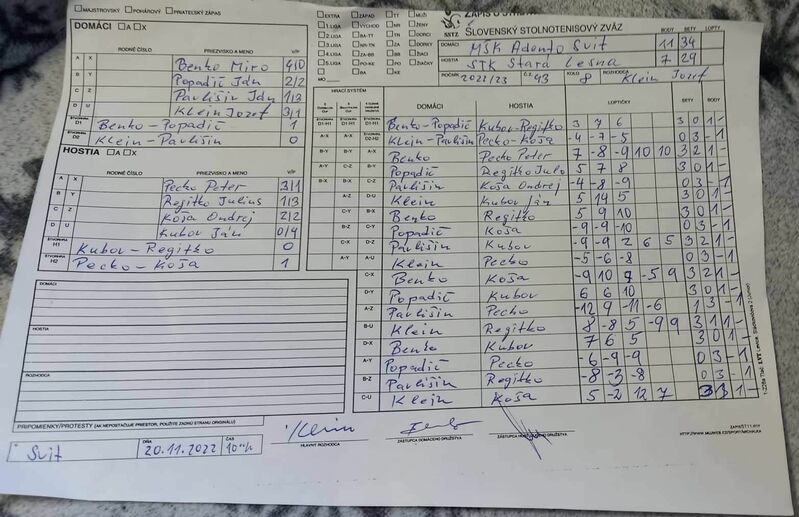 MAJSTROVSKÝ POHÁROVÝ PRIATEĽSKÝ ZÁPAS
DOMÁCI A X
RODNÉ ČÍSLO PRIEZVISKO A MENO V/P
A X Benko Miro 4/0
B Y Popadič Ján 2/2
C Z Pavlišin Ján 1/3
D U Klein Jozef 3/1
ŠTVORHRA D1 Benko - Popadič 1
ŠTVORHRA D2 Klein - Pavlišin 0
HOSTIA A X
RODNÉ ČÍSLO PRIEZVISKO A MENO V/P
A X Pecko Peter 3/1
B Y Regitko Július 1/3
C Z Koša Ondrej 2/2
D U Kubov Ján 0/4
ŠTVORHRA H1 Kubov - Regitko 0
ŠTVORHRA H2 Pecko - Koša 1
DOMÁCI
HOSTIA
ROZHODCA
PRIPOMIENKY/PROTESTY (AK NEPOSTAČUJE PRIESTOR, POUŽITE ZADNÚ STRANU ORIGINÁLU)
Svit
DŇA 20.11.2022
ČAS
HLAVNÝ ROZHODCA
ZÁSTUPCA DOMÁCEHO DRUŽSTVA
ZÁSTUPCA HOSŤUJÚCEHO DRUŽSTVA
EXTRA ZÁPAD TT MUŽI
1.LIGA VÝCHOD NR ŽENY
2.LIGA BA-TT TN DORCI
3.LIGA NR-TN ZA DORKY
4.LIGA ZA-BB BB ŽIACI
5.LIGA PO-KE PO ŽIAČKY
BA KE
MO
SSTZ SLOVENSKÝ STOLNOTENISOVÝ ZVÄZ
BODY SETY LOPTY
DOMÁCI MŠK Adento Svit 11 34
HOSTIA STK Stará Lesná 7 29
ROČNÍK 2022/23 Č.Z. 43 KOLO 8 ROZHODCA Klein Jozef
HRACÍ SYSTÉM
DOMÁCI HOSTIA LOPTIČKY SETY BODY
Benko-Popadič Kubov-Regitko 3 7 6 3 0 1 -
Klein-Pavlišin Pecko-Koša -4 -7 -5 0 3 - 1
Benko Pecko Peter 7 -8 -9 10 10 3 2 1 -
Popadič Regitko Julo 5 7 8 3 0 1 -
Pavlišin Koša Ondrej -4 -8 -9 0 3 - 1
Klein Kubov Ján 5 14 5 3 0 1 -
Benko Regitko 5 9 10 3 0 1 -
Popadič Koša -9 -9 -10 0 3 - 1
Pavlišin Kubov -9 -9 2 6 5 3 2 1 -
Klein Pecko -5 -6 -8 0 3 - 1
Benko Koša -9 10 7 -5 9 3 2 1 -
Popadič Kubov 6 6 10 3 0 1 -
Pavlišin Pecko -12 9 -11 -6 1 3 - 1
Klein Regitko 8 -8 5 -9 9 3 2 1 -
Benko Kubov 7 6 5 3 0 1 -
Popadič Pecko -6 -9 -9 0 3 - 1
Pavlišin Regitko -8 -3 -8 0 3 - 1
Klein Koša 5 -2 12 7 3 1 1 -